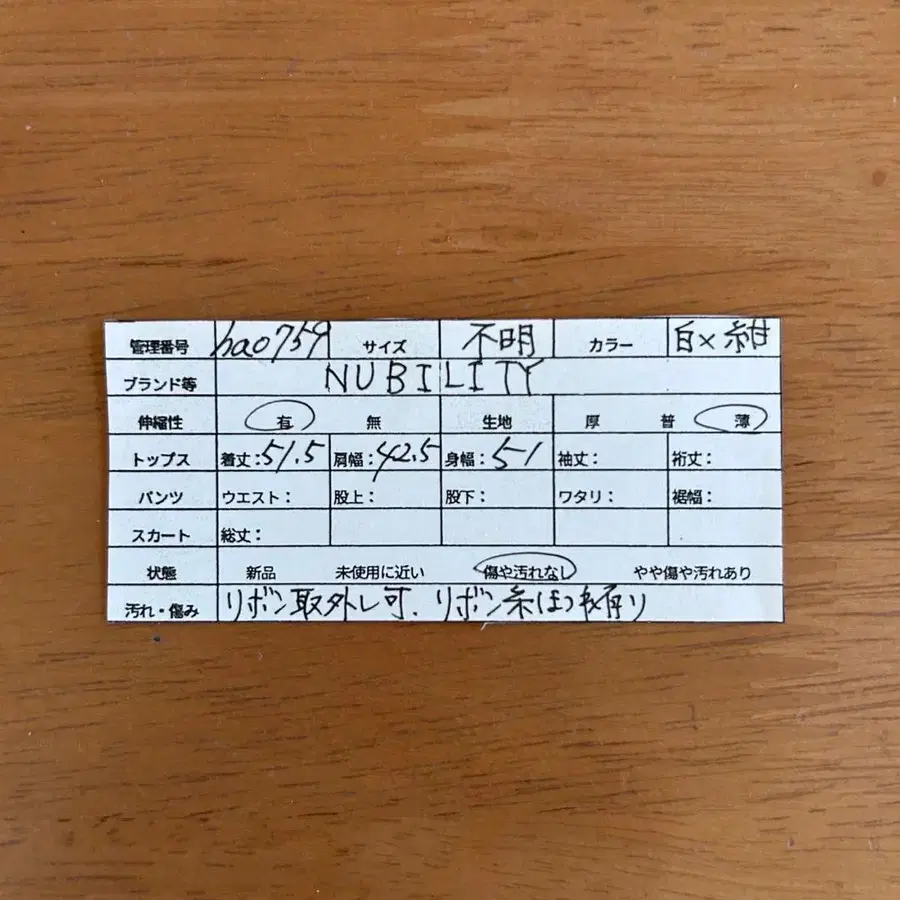 管理番号 hao759 サイズ 不明 カラー 白×紺
ブランド等 NUBILITY
伸縮性 有 無 生地 厚 普 薄
トップス 着丈:51.5 肩幅:42.5 身幅:51 袖丈: 裄丈:
パンツ ウエスト: 股上: 股下: ワタリ: 裾幅:
スカート 総丈:
状態 新品 未使用に近い 傷や汚れなし やや傷や汚れあり
汚れ・傷み リボン取外し可、リボン糸ほつれ有り